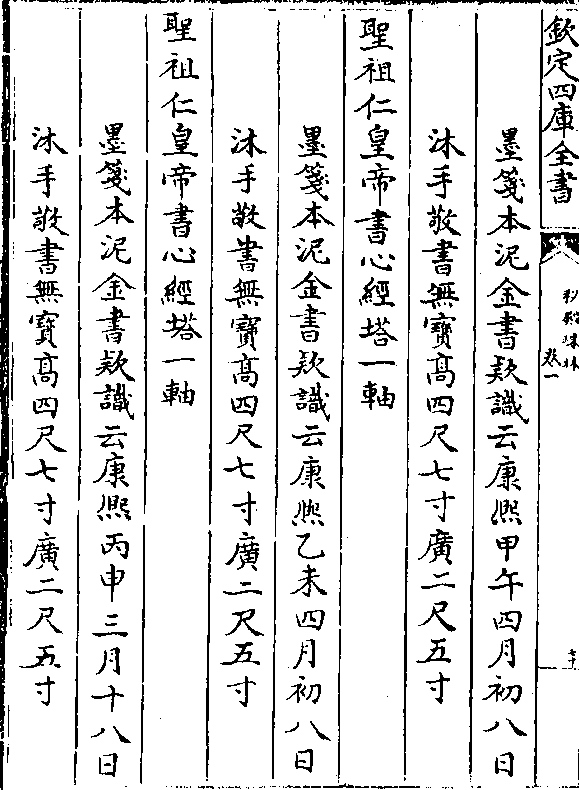 欽定四庫全書
秘殿珠林
卷一
墨箋本泥金書欵識云康熙甲午四月初八日
沐手敬書無寶高四尺七寸廣二尺五寸
聖祖仁皇帝書心經塔一軸
墨箋本泥金書欵識云康熙乙未四月初八日
沐手敬書無寶高四尺七寸廣二尺五寸
聖祖仁皇帝書心經塔一軸
墨箋本泥金書欵識云康熙丙申三月十八日
沐手敬書無寶高四尺七寸廣二尺五寸